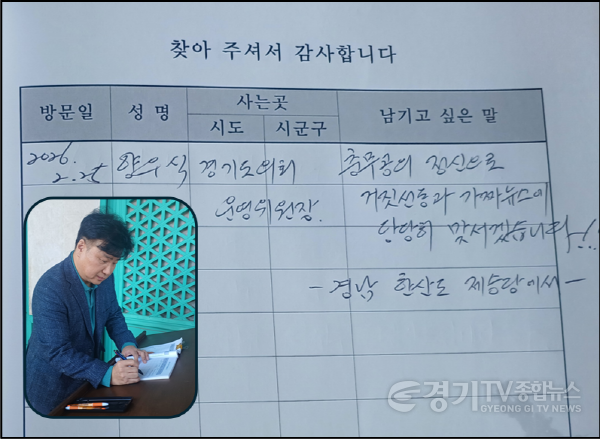 찾아 주셔서 감사합니다
방문일 성명 사는곳 남기고 싶은 말
시도 시군구
2026. 2. 25 양우식 경기도의회 충무공의 정신으로
운영위원장. 거짓선동과 가짜뉴스에
당당히 맞서겠습니다~!!
- 경남 한산도 제승당에서 -
경기TV종합뉴스
GYEONG GI.TV NEWS